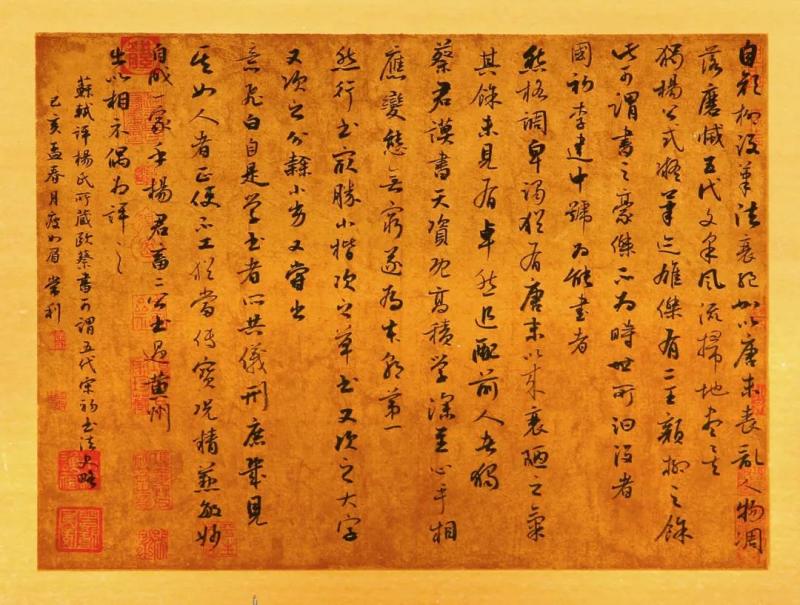 自顏柳沒筆法衰絕加以唐末喪亂人物凋
落磨滅五代文采風流掃地盡矣
獨楊公式凝筆迹雄傑有二王顏柳之餘
此可謂書之豪傑不為時世所汩沒者
國初李建中號為能書者
然格調卑濁猶有唐末以來衰陋之氣
其餘未見有卓然追配前人者獨
蔡君謨書天資既高積學深至心手相
應變態無窮遂為本朝第一
然行書最勝小楷次之草書又次之大字
又次之分隸小劣又嘗出
意飛白自是学書者心共儀刑庶幾見
其如人者正使不工猶當傳寶况精燕敏妙
自成一家乎楊君畜二公書過黃州
出以相示偶為評之
蘇軾評楊氏所藏歐蔡書可謂五代宋初書法史略
己亥孟春月 眉 常利